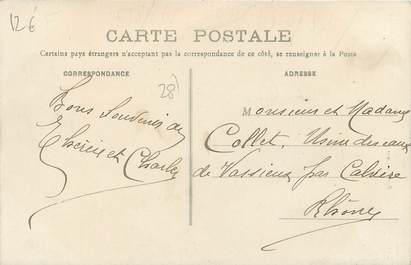 12€
CARTE POSTALE
Certains pays étrangers n'acceptant pas la correspondance de ce côté, se renseigner à la Poste
CORRESPONDANCE
28)
Bons Souvenirs de
et Charles
ADRESSE
Monsieur et Madame
Collet, Usine des eaux
de Vassieux par Caluire
Rhône